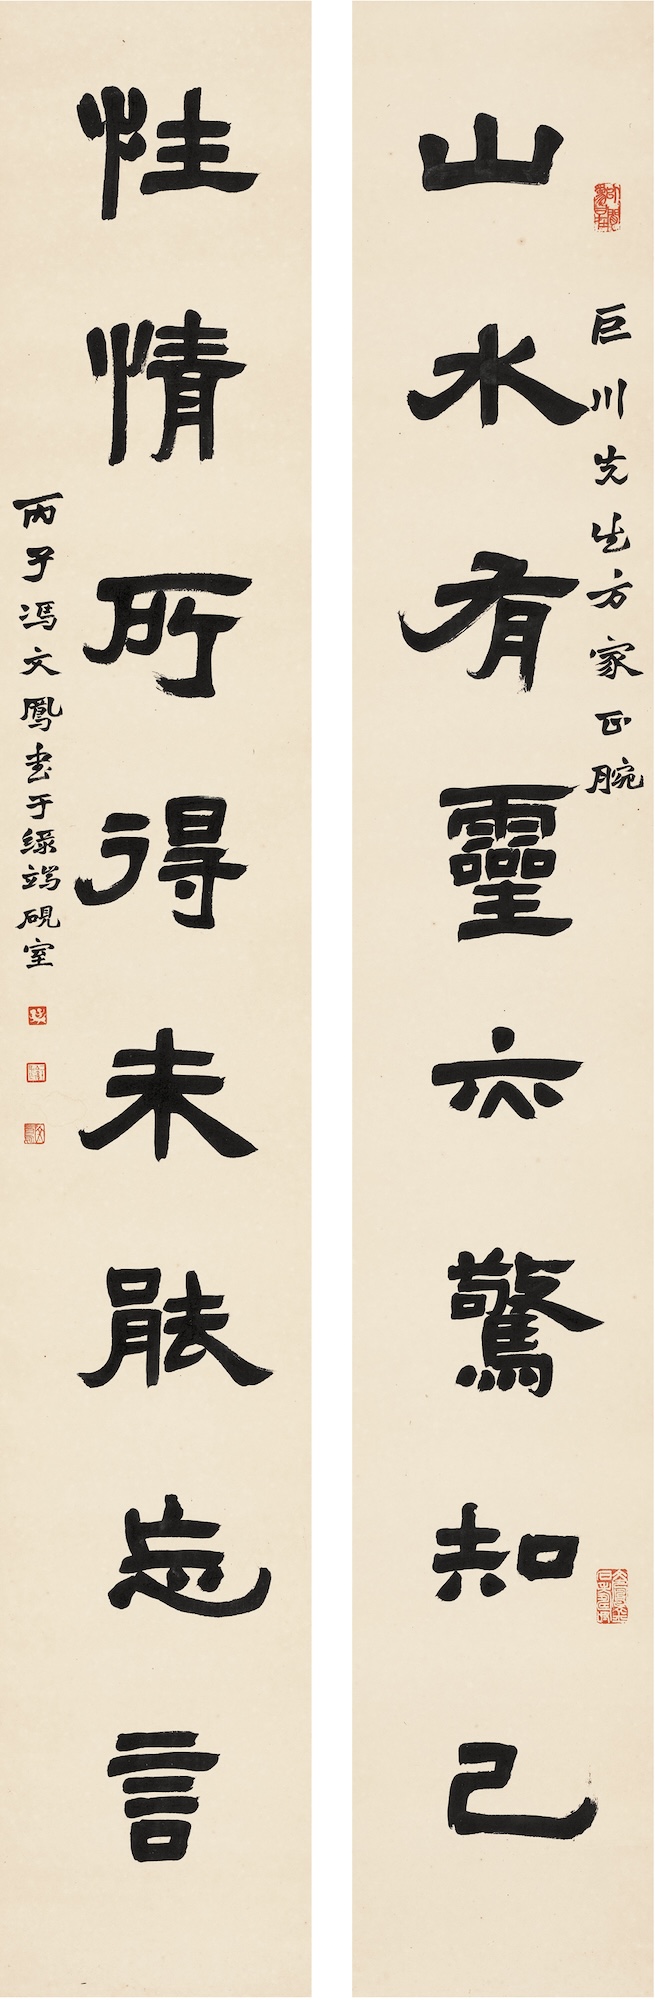 巨川先生方家正腕
山水有靈亦驚知己
性情所得未能忘言
丙子馮文鳳書于綠端硯室